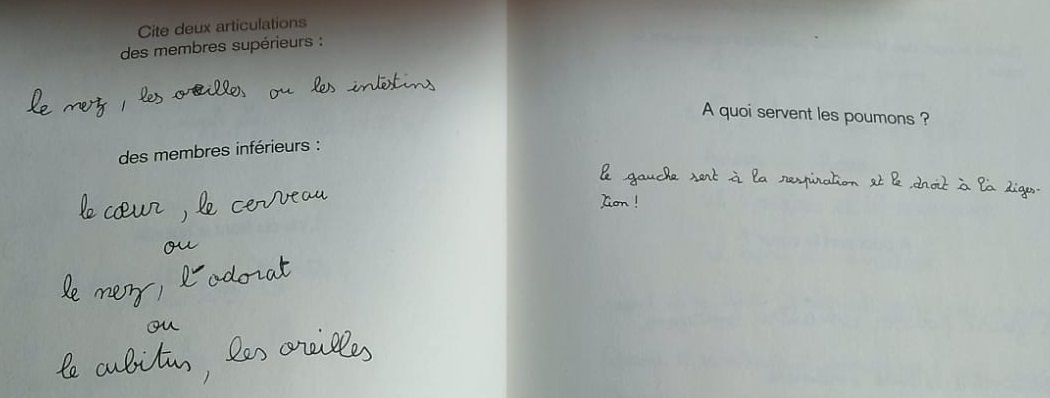 Cite deux articulations
des membres supérieurs :
le nez, les oreilles ou les intestins
des membres inférieurs :
le cœur, le cerveau
ou
le nez, l'odorat
ou
le cubitus, les oreilles
A quoi servent les poumons ?
le gauche sert à la respiration et le droit à la diges-
tion !